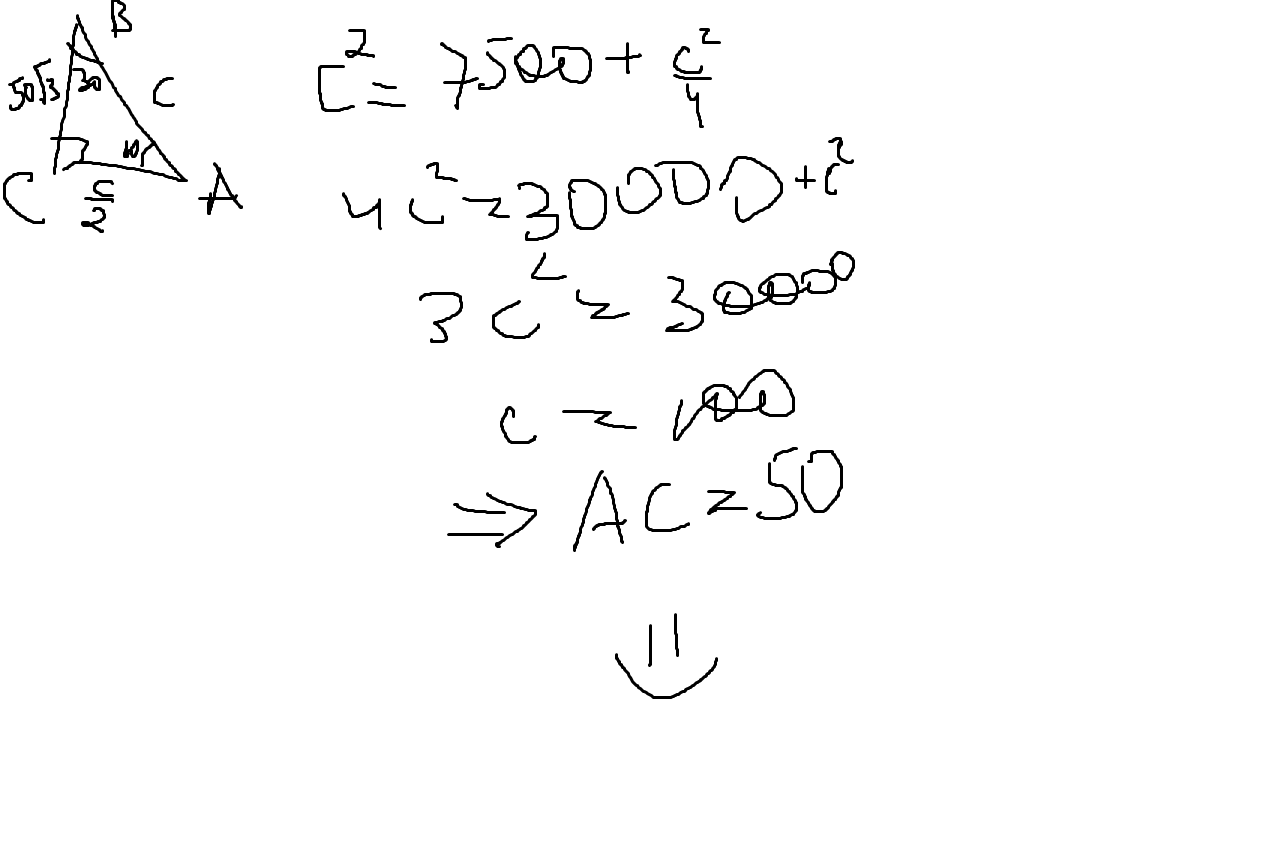 B
50√3 30 C
60
C c/2 A
c² = 7500 + c²/4
4c² = 30000 + c²
3c² = 30000
c = 100
⇒ AC = 50